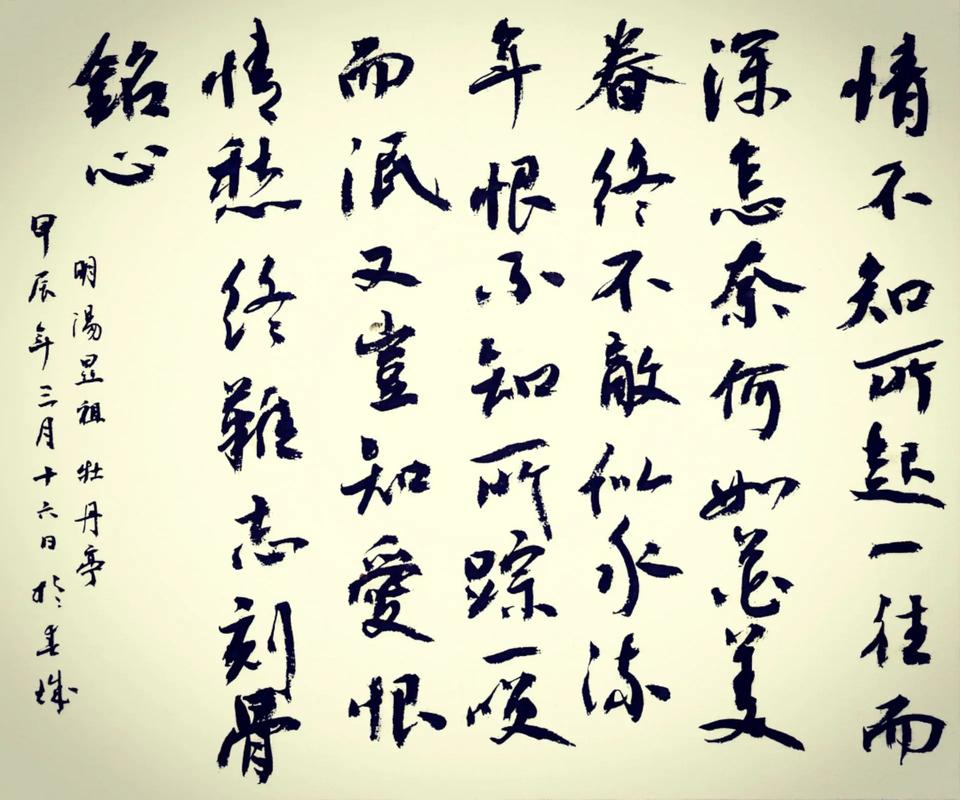 情不知所起一往而
深怎奈何如花美
眷终不敵似水流
年恨不知所踪一咲
而泯又豈知愛恨
情愁终難志刻骨
銘心
明湯显祖 牡丹亭
甲辰年三月十六日於春城